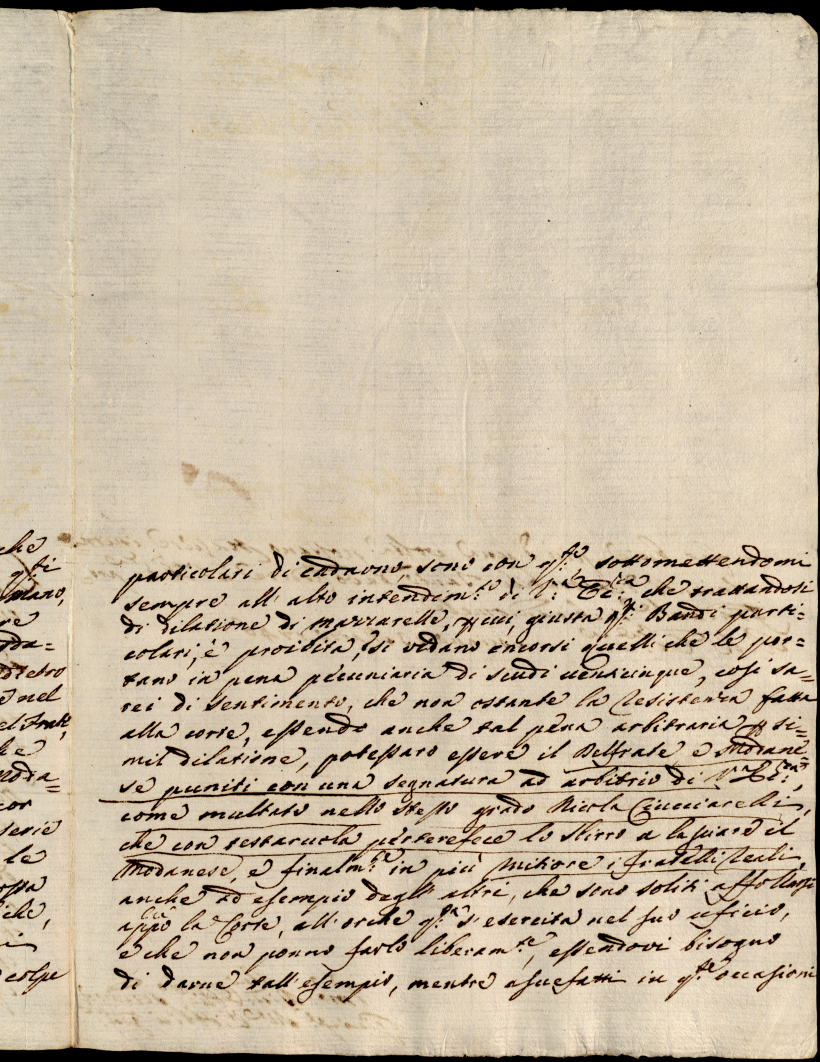 che
q.sti
mano,
re
nda=
dietro
e nel
el Frate,
lie
moda=
cor
serie
le
ossa
iche,
colpe
particolari di cadauno, sono con q.sto, sottomettendomi
sempre all' alto intendim.to di V.ra Ecc.za che trattandosi
di dilatione di mazzarelle, p cui, giusta q.sti Bandi parti=
colari, è proibita, si vedano incorsi quelli che le por=
tano in pena pecuniaria di scudi venticinque, così sa=
rei di sentimento, che non ostante la resistenza fatta
alla corte, essendo anche tal pena arbitraria p si=
mil dilatione, potessaro essere il Belfrate e Modane=
se puniti con una segnatura ad arbitrio di V.ra Ecc.za,
come multato nello stesso grado Nicola Ciucciarelli,
che con testaruola perterefece lo sbirro a lasciare il
Modanese, e finalm.te in più mitiore i fratelli Reali,
anche ad esempio degl' altri, che sono soliti affollarsi
app.o la Corte, all' orche q.sta s' esercita nel suo officio,
e che non ponno farlo liberam.te, essendovi bisogno
di darne tall' esempio, mentre asuefatti in q.ste occasioni